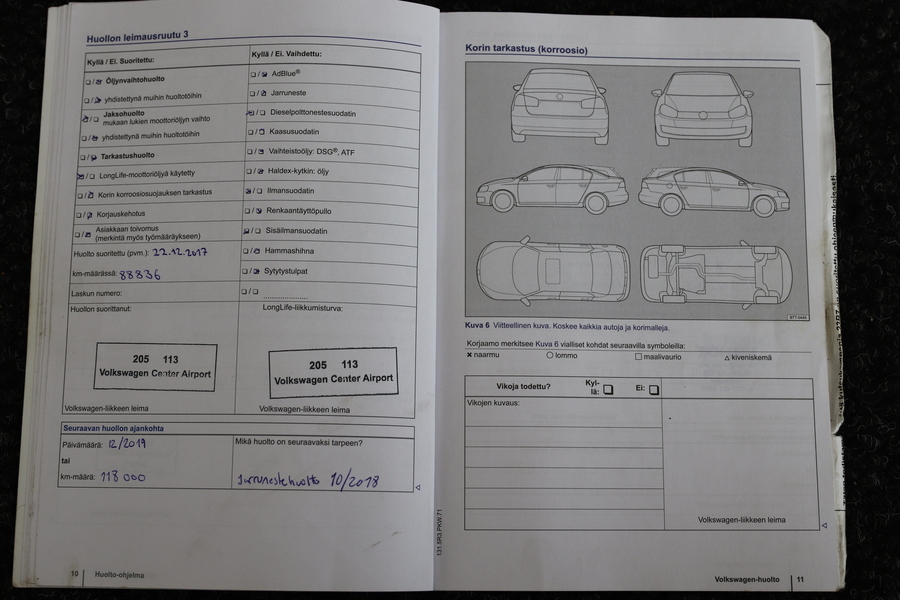 Huollon leimausruutu 3
Kyllä / Ei. Suoritettu:
Öljynvaihtohuolto
yhdistettynä muihin huoltotöihin
Jaksohuolto
mukaan lukien moottoriöljyn vaihto
yhdistettynä muihin huoltotöihin
Tarkastushuolto
LongLife-moottoriöljyä käytetty
Korin korroosiosuojauksen tarkastus
Korjauskehotus
Asiakkaan toivomus
(merkintä myös työmääräykseen)
Huolto suoritettu (pvm.): 22.12.2017
km-määrässä: 88836
Laskun numero:
Huollon suorittanut:
205 113
Volkswagen Center Airport
Volkswagen-liikkeen leima
Kyllä / Ei. Vaihdettu:
AdBlue®
Jarruneste
Dieselpolttonestesuodatin
Kaasusuodatin
Vaihteistoöljy: DSG®, ATF
Haldex-kytkin: öljy
Ilmansuodatin
Renkaantäyttöpullo
Sisäilmansuodatin
Hammashihna
Sytytystulpat
LongLife-liikkumisturva:
205 113
Volkswagen Center Airport
Volkswagen-liikkeen leima
Seuraavan huollon ajankohta
Päivämäärä: 12/2019
tai
km-määrä: 118 000
Mikä huolto on seuraavaksi tarpeen?
Jarrunestehuolto 10/2018
10 Huolto-ohjelma
131.5R3.PKW.71
Korin tarkastus (korroosio)
B7T-0445
Kuva 6 Viitteellinen kuva. Koskee kaikkia autoja ja korimalleja.
Korjaamo merkitsee Kuva 6 vialliset kohdat seuraavilla symboleilla:
× naarmu ○ lommo □ maalivaurio △ kiveniskemä
Vikoja todettu? Kyl-
lä: Ei:
Vikojen kuvaus:
Volkswagen-liikkeen leima
Volkswagen-huolto 11